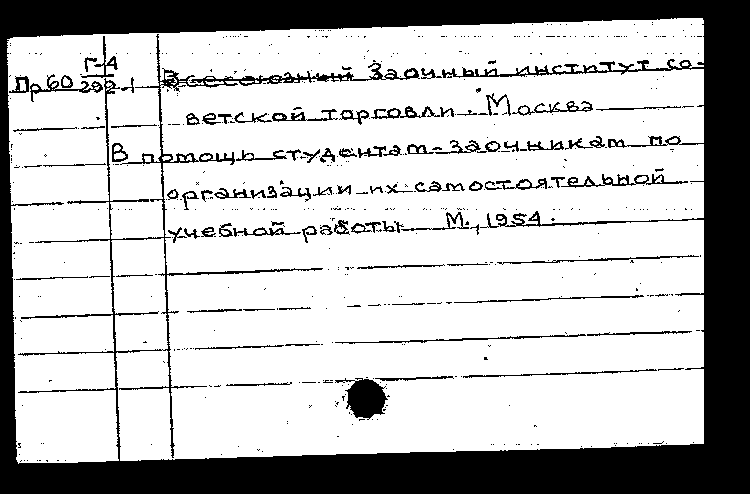 Г-4
Пр60 292-1 Всесоюзный Заочный институт со-
ветской торговли. Москва
В помощь студентам-заочникам по
организации их самостоятельной
учебной работы. М., 1954.